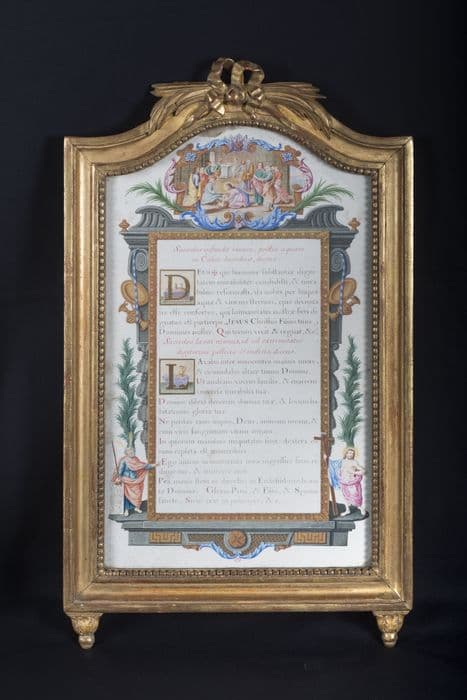 Sacerdos infundit vinum, postea aquam
in Calice benedicit, dicens.
DEUS ✠ qui humanæ substantiæ digni-
tatem mirabiliter condidisti, & mira-
bilius reformasti, da nobis per hujus
aquæ & vini mysterium, ejus divinita-
tis esse consortes, qui humanitatis nostræ fieri di-
gnatus est particeps, JESUS Christus Filius tuus,
Dominus noster. Qui tecum vivit & regnat, &c.
Sacerdos lavat manus, id est extremitates
digitorum pollicis & indicis, dicens.
LAvabo inter innocentes manus meas,
& circumdabo altare tuum Domine.
Ut audiam vocem laudis, & enarrem
universa mirabilia tua.
Domine dilexi decorem domus tuæ, & locum ha-
bitationis gloriæ tuæ.
Ne perdas cum impiis, Deus, animam meam, &
cum viris sanguinum vitam meam.
In quorum manibus iniquitates sunt: dextera eo-
rum repleta est muneribus.
Ego autem in innocentia mea ingressus sum: re-
dime me, & miserere mei.
Pes meus stetit in directo: in Ecclesiis benedicam
te Domine. Gloria Patri, & Filio, & Spiritui
sancto. Sicut erat in principio, & c.